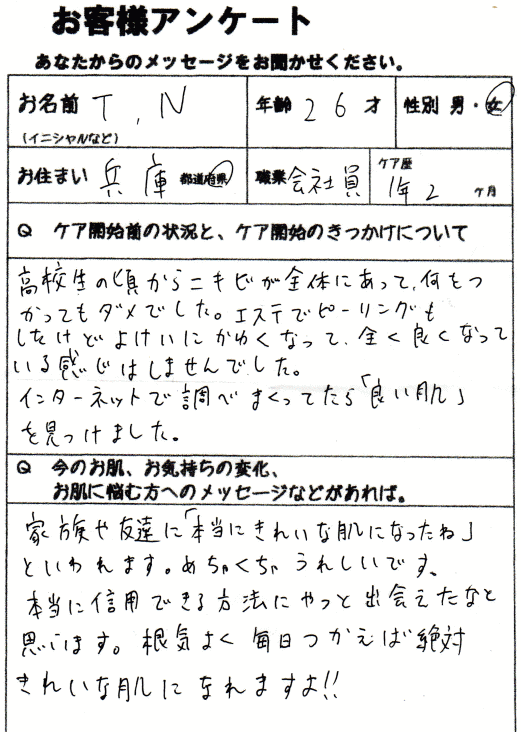 お客様アンケート
あなたからのメッセージをお聞かせください。
お名前 T, N 年齢 26 才 性別 男・女
(イニシャルなど)
お住まい 兵庫 都道府県 職業 会社員 ケア歴 1年2ヶ月
Q ケア開始前の状況と、ケア開始のきっかけについて
高校生の頃からニキビが全体にあって、何もつ
かってもダメでした。エステでピーリングも
したけどよけいにかゆくなって、全く良くなって
いる感じはしませんでした。
インターネットで調べまくってたら「良い肌」
を見つけました。
Q 今のお肌、お気持ちの変化、
お肌に悩む方へのメッセージなどがあれば。
家族や友達に「本当にきれいな肌になったね」
といわれます。めちゃくちゃうれしいです。
本当に信用できる方法にやっと出会えたなと
思います。根気よく毎日つかえば絶対
きれいな肌になれますよ!!